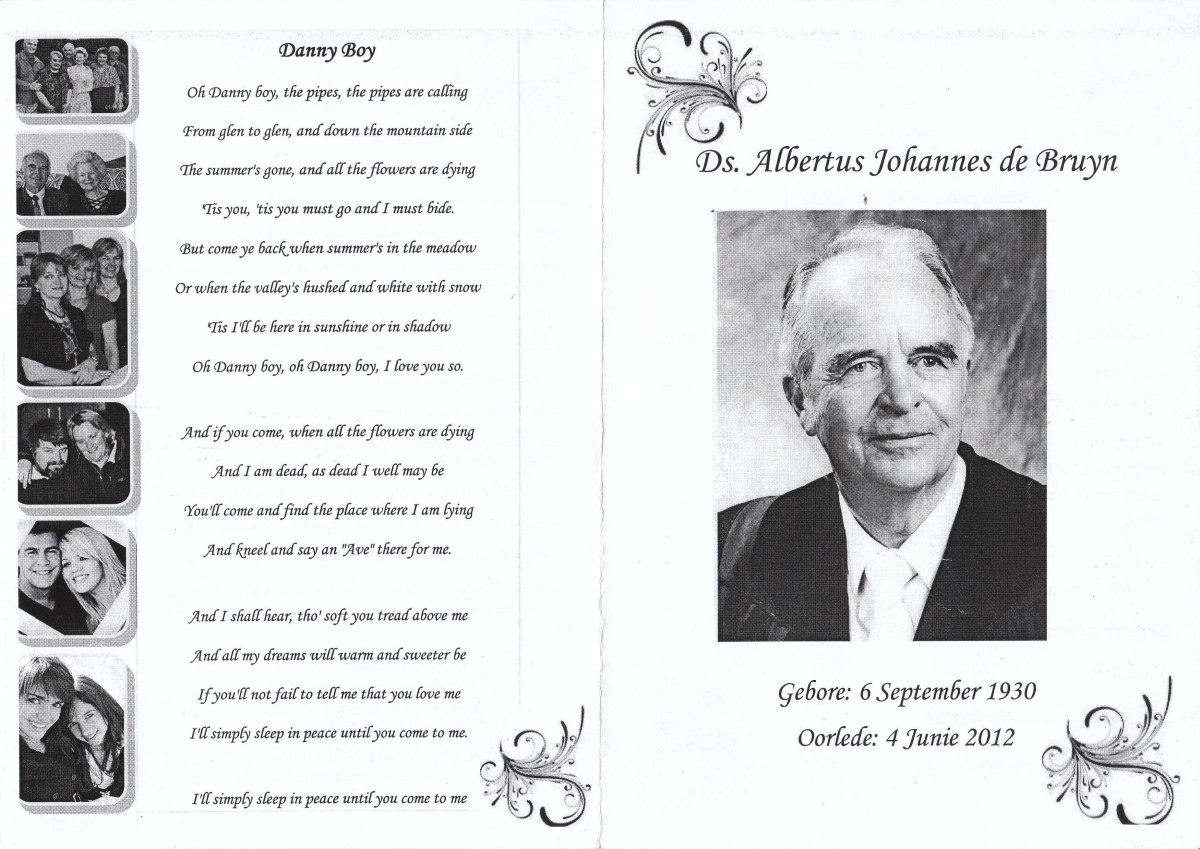 Danny Boy
Oh Danny boy, the pipes, the pipes are calling
From glen to glen, and down the mountain side
The summer's gone, and all the flowers are dying
'Tis you, 'tis you must go and I must bide.
But come ye back when summer's in the meadow
Or when the valley's hushed and white with snow
'Tis I'll be here in sunshine or in shadow
Oh Danny boy, oh Danny boy, I love you so.
And if you come, when all the flowers are dying
And I am dead, as dead I well may be
You'll come and find the place where I am lying
And kneel and say an "Ave" there for me.
And I shall hear, tho' soft you tread above me
And all my dreams will warm and sweeter be
If you'll not fail to tell me that you love me
I'll simply sleep in peace until you come to me.
I'll simply sleep in peace until you come to me
Ds. Albertus Johannes de Bruyn
Gebore: 6 September 1930
Oorlede: 4 Junie 2012